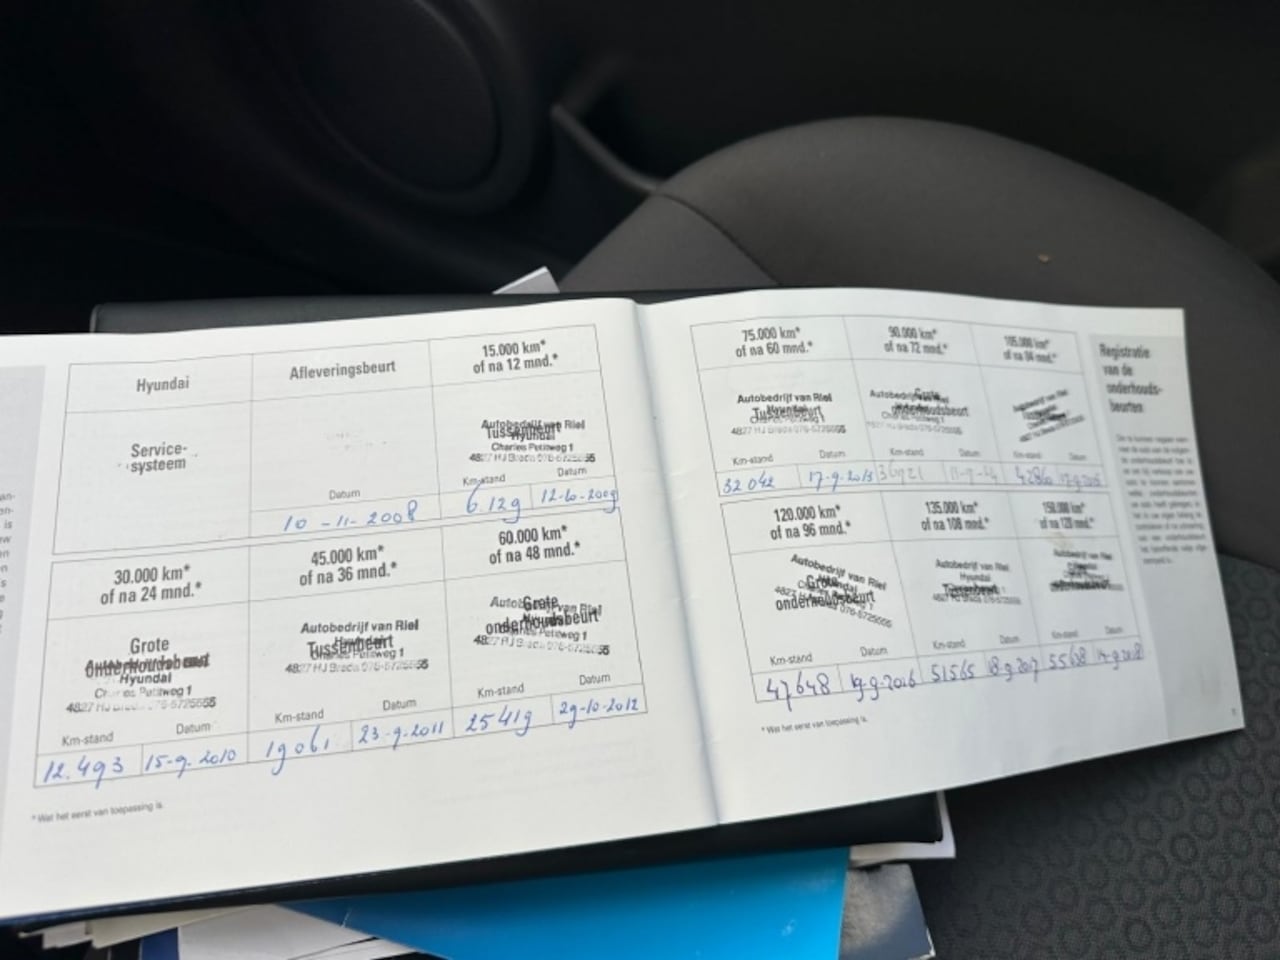 Hyundai
Service-
systeem
Afleveringsbeurt
Datum
10-11-2008
15.000 km*
of na 12 mnd.*
Autobedrijf van Riel
Tussenbeurt
Hyundai
Charles Petitweg 1
4827 HJ Breda 076-5725555
Km-stand
Datum
6.129
12-10-2009
30.000 km*
of na 24 mnd.*
Grote
onderhoudsbeurt
Hyundai
Charles Petitweg 1
4827 HJ Breda 076-5725555
Km-stand
Datum
12.493
15-9-2010
45.000 km*
of na 36 mnd.*
Autobedrijf van Riel
Hyundai
Tussenbeurt
Charles Petitweg 1
4827 HJ Breda 076-5725555
Km-stand
Datum
19061
23-9-2011
60.000 km*
of na 48 mnd.*
Autobedrijf van Riel
Grote
onderhoudsbeurt
Charles Petitweg 1
4827 HJ Breda 076-5725555
Km-stand
Datum
25419
29-10-2012
* Wat het eerst van toepassing is.
75.000 km*
of na 60 mnd.*
Autobedrijf van Riel
Hyundai
Tussenbeurt
Charles Petitweg 1
4827 HJ Breda 076-5725555
Km-stand
Datum
32042
17-9-2013
90.000 km*
of na 72 mnd.*
Autobedrijf van Riel
Grote
onderhoudsbeurt
Km-stand
Datum
105.000 km*
of na 84 mnd.*
Autobedrijf van Riel
Km-stand
Datum
42860
17-9-2015
120.000 km*
of na 96 mnd.*
Autobedrijf van Riel
Grote
onderhoudsbeurt
076-5725555
Km-stand
Datum
47648
19-9-2016
135.000 km*
of na 108 mnd.*
Autobedrijf van Riel
Hyundai
Tussenbeurt
Km-stand
Datum
51565
18-9-2017
150.000 km*
of na 120 mnd.*
Autobedrijf van Riel
onderhoudsbeurt
Km-stand
Datum
14-9-2018
* Wat het eerst van toepassing is.
Registratie
van de
onderhouds-
beurten